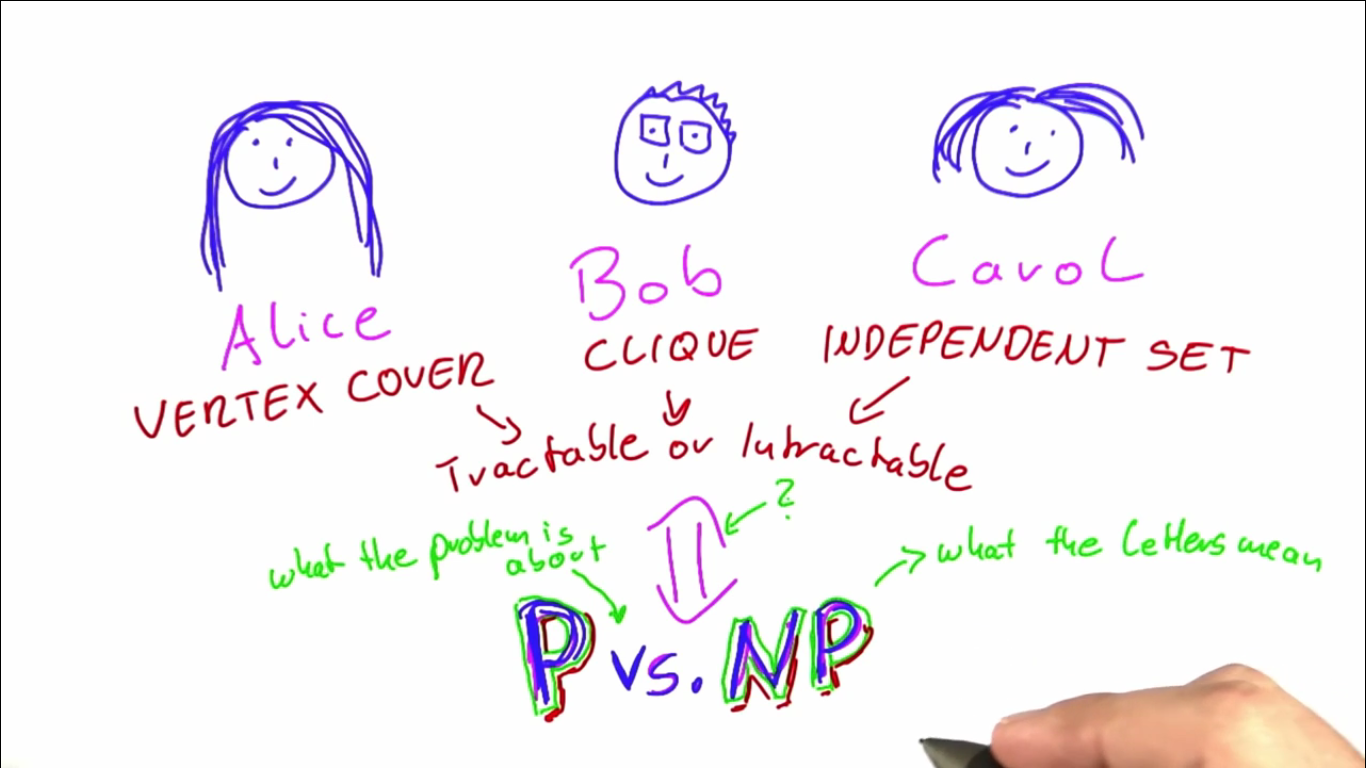 Alice
Bob
Carol
VERTEX COVER
CLIQUE
INDEPENDENT SET
Tractable or Intractable
?
what the problem is
about
what the letters mean
P vs. NP